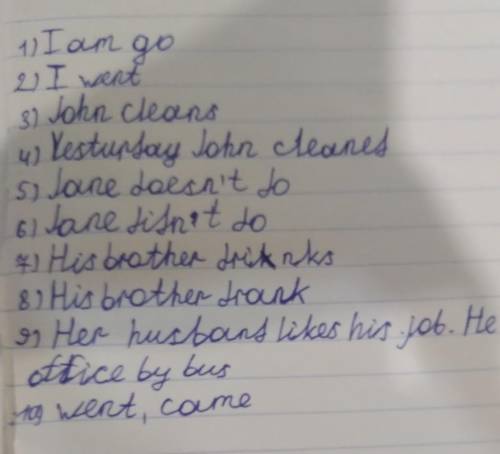 1) I am go
2) I went
3) John cleans
4) Yesturday John cleaned
5) Jane doesn't do
6) Jane didn't do
7) His brother drinks
8) His brother drank
9) Her husband likes his job. He
office by bus
10) went, came